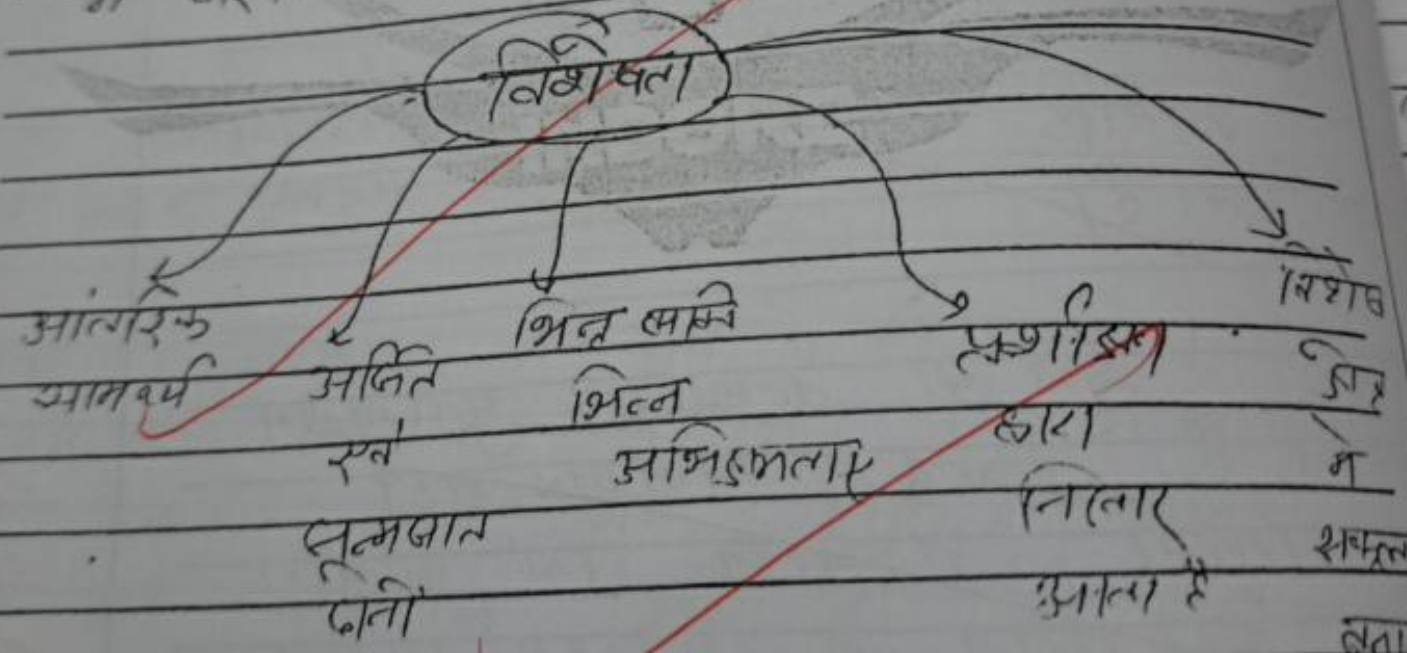 विशेषता
आंतरिक
सामर्थ्य
अर्जित
एवं
जन्मजात
दोनों
भिन्न
भिन्न
अभिक्षमताए
प्रशिक्षण
द्वारा
निखार
आता है
विशेष
क्षेत्र
में